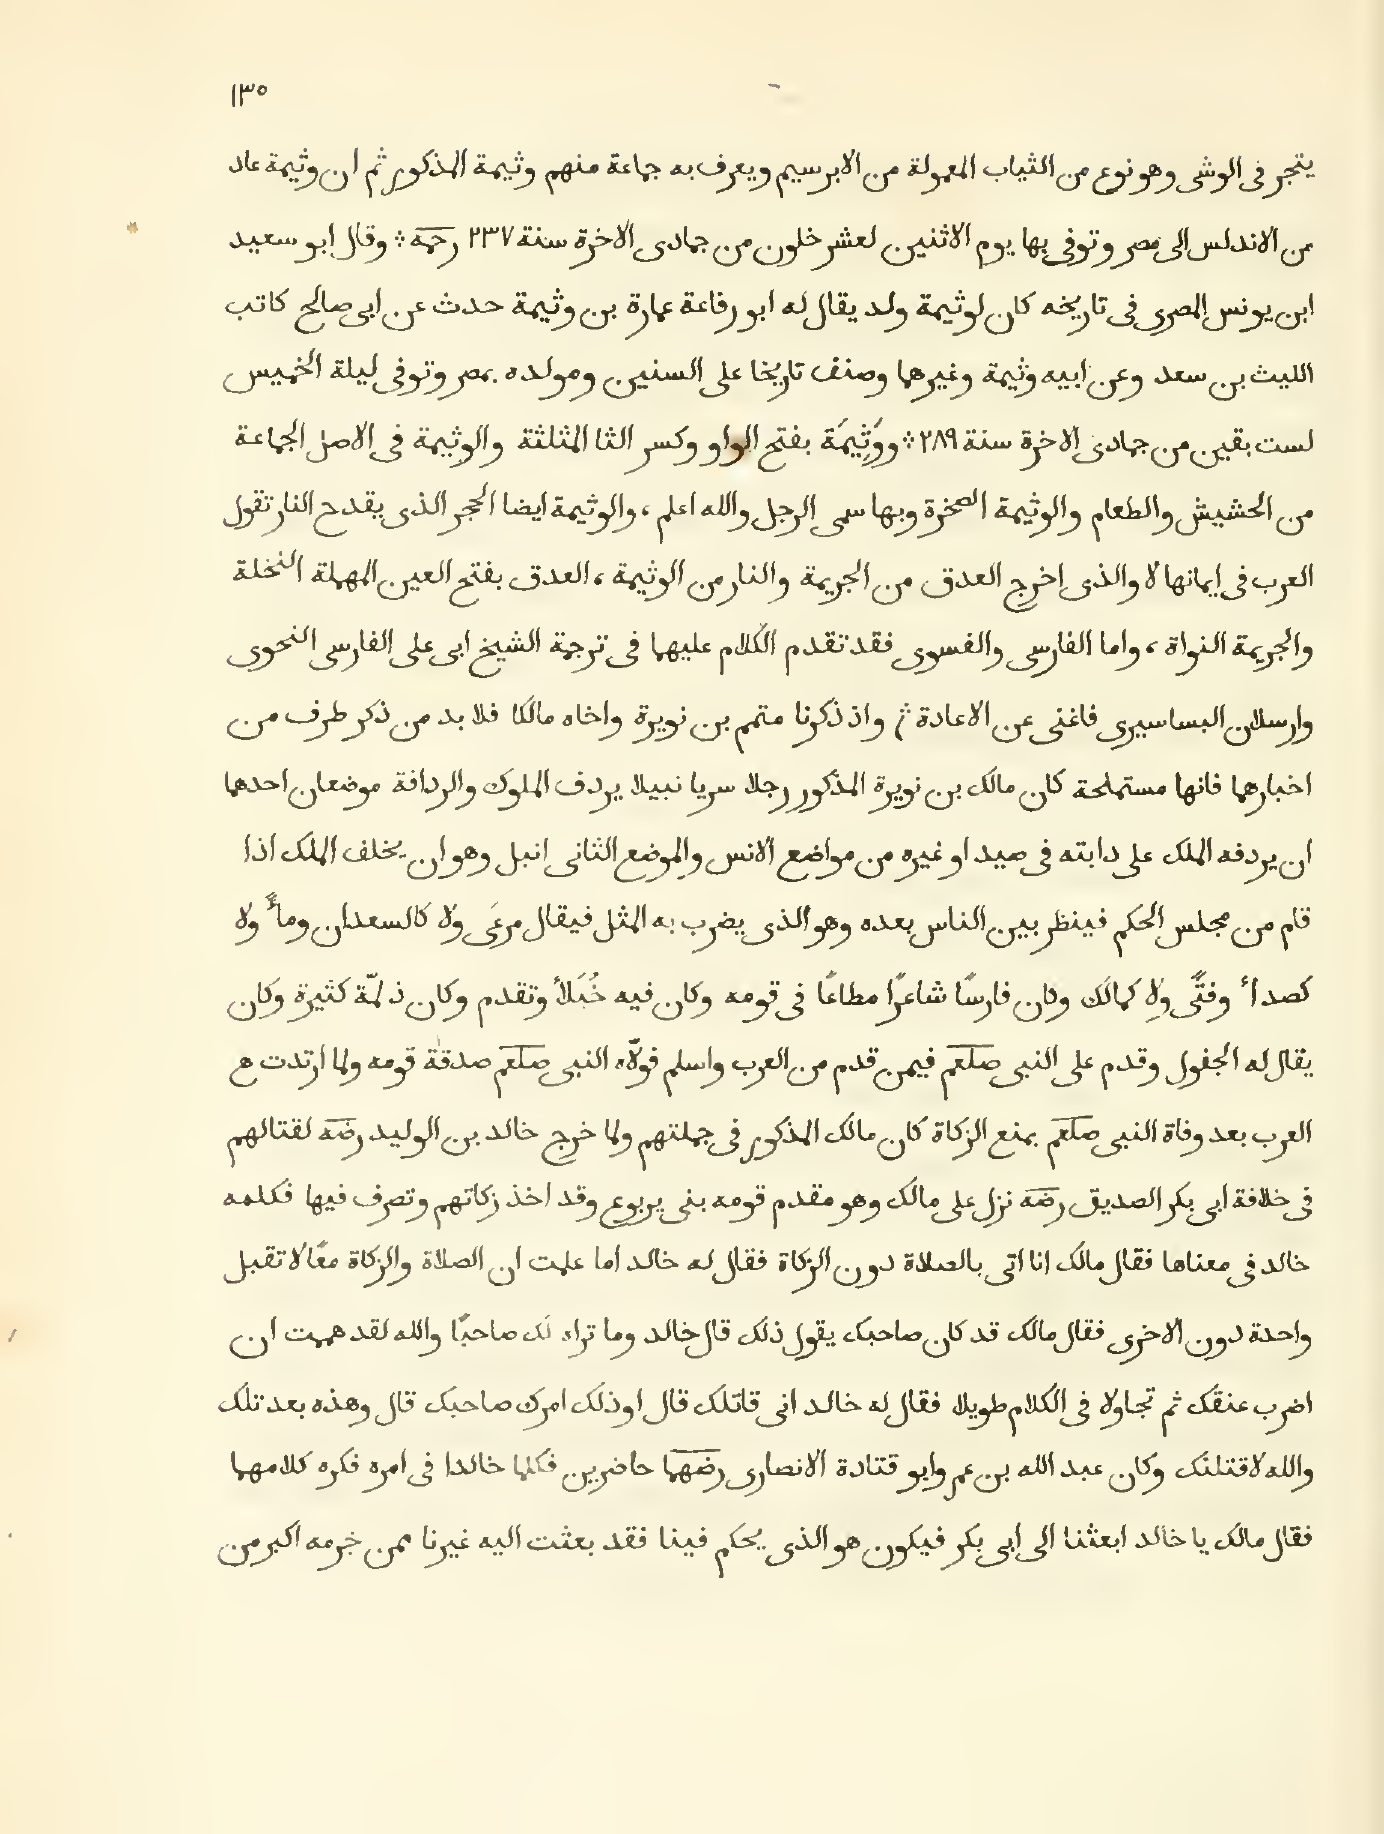 ١٣٥
يتجر فى الوشى وهو نوع من الثياب المعمولة من الابرسيم ويعرف به جماعة منهم وثيمة المذكور ثم ان وثيمة عاد
من الاندلس الى مصر وتوفى بها يوم الاثنين لعشر خلون من جمادى الاخرة سنة ٢٣٧ رحمه ؞ وقال ابو سعيد
ابن يونس المصرى فى تاريخه كان لوثيمة ولد يقال له ابو رفاعة عمارة بن وثيمة حدث عن ابى صالح كاتب
الليث بن سعد وعن ابيه وثيمة وغيرهما وصنف تاريخا على السنين ومولده بمصر وتوفى ليلة الخميس
لست بقين من جمادى الاخرة سنة ٢٨٩ ؞ ووَثِيمَة بفتح الواو وكسر الثا المثلثة والوثيمة فى الاصل الجماعة
من الحشيش والطعام والوثيمة الصخرة وبها سمى الرجل والله اعلم ، والوثيمة ايضا الحجر الذى يقدح النار تقول
العرب فى ايمانها لا والذى اخرج العدق من الجريمة والنار من الوثيمة ، العدق بفتح العين المهملة النخلة
والجريمة النواة ، واما الفارسى والفسوى فقد تقدم الكلام عليهما فى ترجمة الشيخ ابى على الفارسى النحوى
وارسلان البساسيرى فاغنى عن الاعادة ثم واذ ذكرنا متمم بن نويرة واخاه مالكا فلا بد من ذكر طرف من
اخبارهما فانها مستملحة كان مالك بن نويرة المذكور رجلا سريا نبيلا يردف الملوك والردافة موضعان احدهما
ان يردفه الملك على دابته فى صيد او غيره من مواضع الانس والموضع الثانى انبل وهو ان يخلف الملك اذا
قام من مجلس الحكم فينظر بين الناس بعده وهو الذى يضرب به المثل فيقال مرعَى ولا كالسعدان وماءٌ ولا
كصداء وفتًى ولا كمالك وكان فارسًا شاعرًا مطاعًا فى قومه وكان فيه خُيَلاء وتقدم وكان ذ لمّة كثيرة وكان
يقال له الجفول وقدم على النبى صلعم فيمن قدم من العرب واسلم فولّاه النبى صلعم صدقة قومه ولما ارتدت ﻫ
العرب بعد وفاة النبى صلعم بمنع الزكاة كان مالك المذكور فى جملتهم ولما خرج خالد بن الوليد رضه لقتالهم
فى خلافة ابى بكر الصديق رضه نزل على مالك وهو مقدم قومه بنى يربوع وقد اخذ زكاتهم وتصرف فيها فكلمه
خالد فى معناها فقال مالك انا اتى بالصلاة دون الزكاة فقال له خالد اما علمت ان الصلاة والزكاة معًا لا تقبل
واحدة دون الاخرى فقال مالك قد كان صاحبك يقول ذلك قال خالد وما تراه لك صاحبًا والله لقد هممت ان
اضرب عنقك ثم تجاولا فى الكلام طويلا فقال له خالد انى قاتلك قال اوذلك امرك صاحبك قال وهذه بعد تلك
والله لاقتلنك وكان عبد الله بن عمر وابو قتادة الانصارى رضهما حاضرين فكلما خالدا فى امره فكره كلامهما
فقال مالك يا خالد ابعثنا الى ابى بكر فيكون هو الذى يحكم فينا فقد بعثت اليه غيرنا ممن جرمه اكبر من